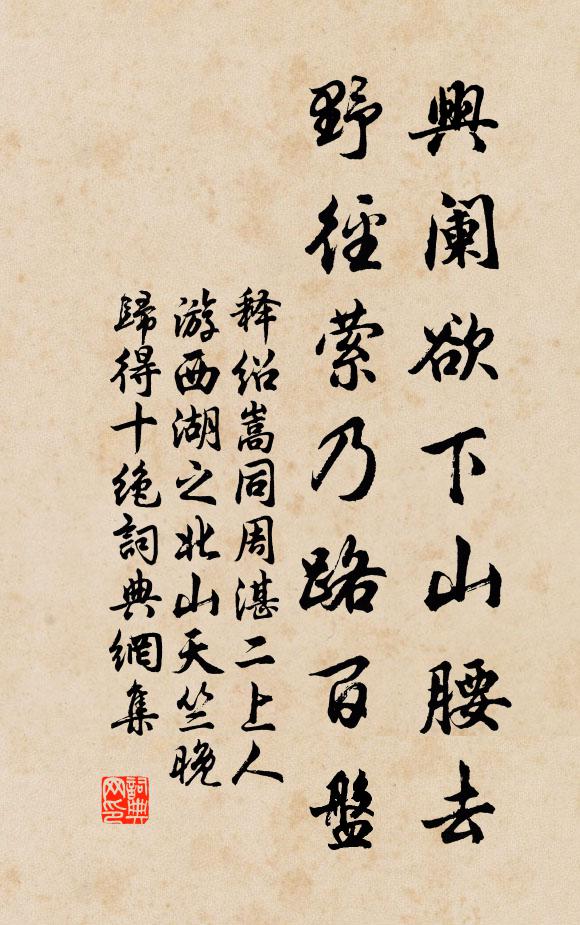 興闌欲下山腰去
野徑萦乃路百盤
释紹嵩同周湛二上人
游西湖之北山天竺晚
歸得十绝詞典網集
詞典
网印